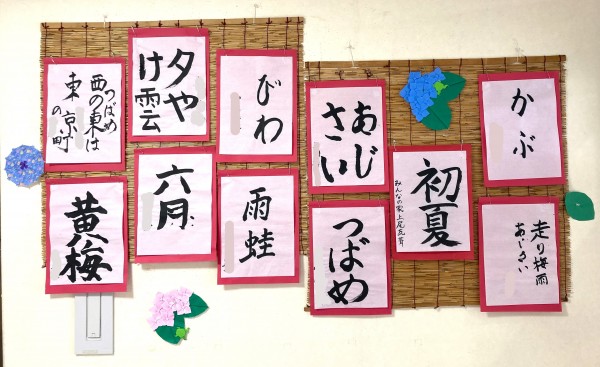 つばめ
西の東は
東の京町
夕や
け雲
びわ
黄梅
六月
雨蛙
あじ
さい
つばめ
初夏
みんなの家上尾瓦葺
かぶ
走り梅雨
あじさい